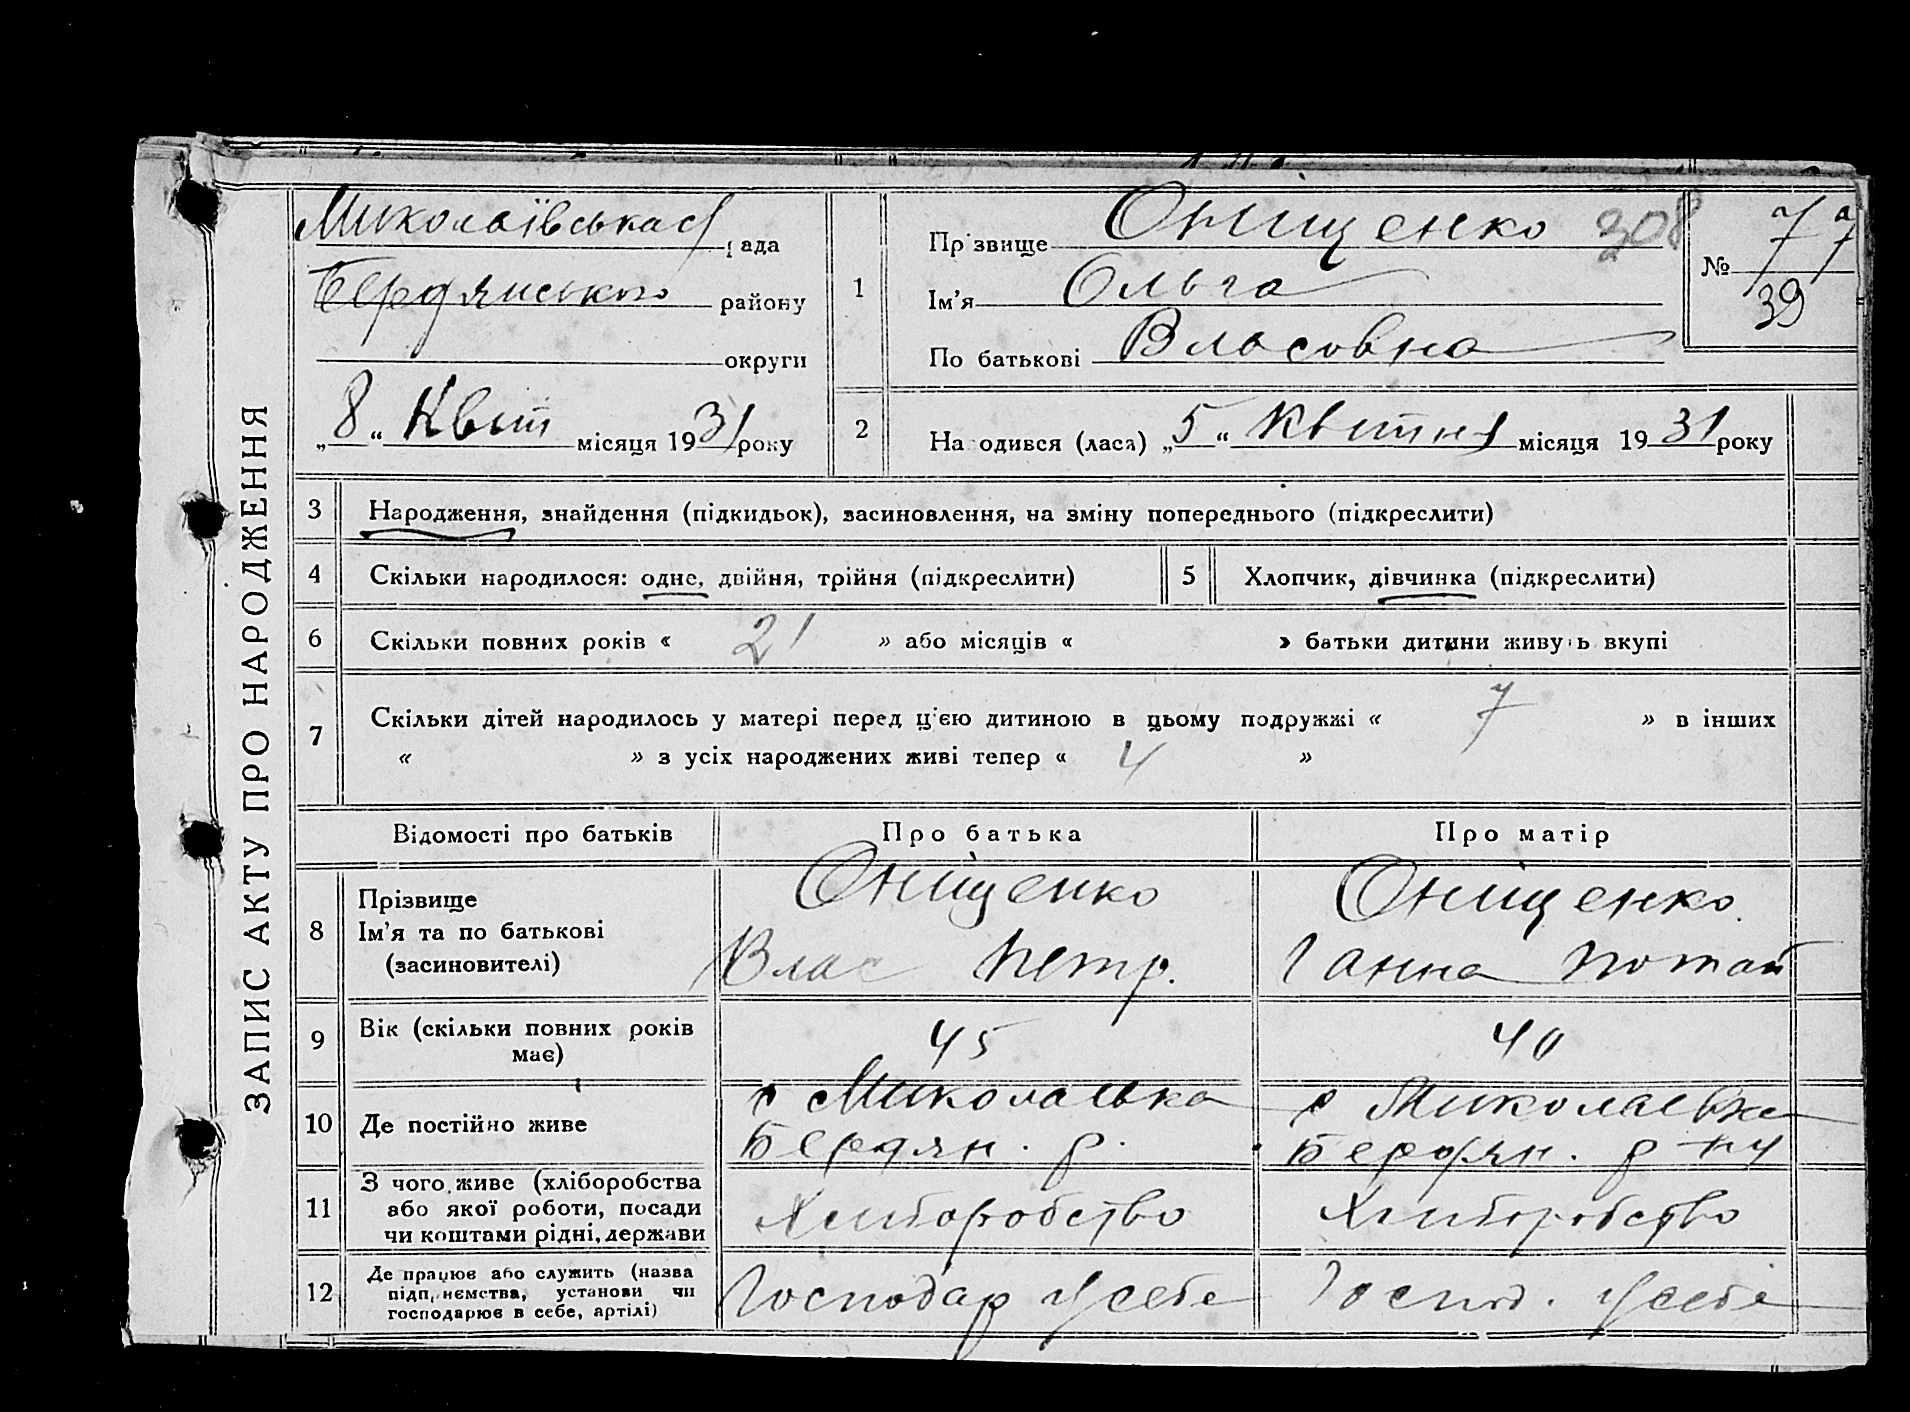 ЗАПИС АКТУ ПРО НАРОДЖЕННЯ
Миколаївська с/рада
Бердянського району
округи
„8“ Квіт місяця 1931 року
1
Прізвище Оніщенко 308
Ім’я Ольга
По батькові Власовна
№ 77
39
2
Народився (лася) „5“ Квітня місяця 1931 року
3 Народження, знайдення (підкидьок), засиновлення, на зміну попереднього (підкреслити)
4 Скільки народилося: одне, двійня, трійня (підкреслити)
5 Хлопчик, дівчинка (підкреслити)
6 Скільки повних років « 21 » або місяців « » батьки дитини живуть вкупі
7 Скільки дітей народилось у матері перед цією дитиною в цьому подружжі « 7 » в інших
« » з усіх народжених живі тепер « 4 »
Відомості про батьків Про батька Про матір
8 Прізвище
Ім’я та по батькові
(засиновителі)
Оніщенко
Влас Петр.
Оніщенко
Ганна Потап
9 Вік (скільки повних років
має)
45
40
10 Де постійно живе
с Миколаївка
Бердян. р.
с Миколаевка
Бердян. р-ну
11 З чого живе (хліборобства
або якої роботи, посади
чи коштами рідні, держави
Хліборобство
Хліборобство
12 Де працює або служить (назва
підприємства, установи чи
господарює в себе, артілі)
Господар у себе
Господ. у себе